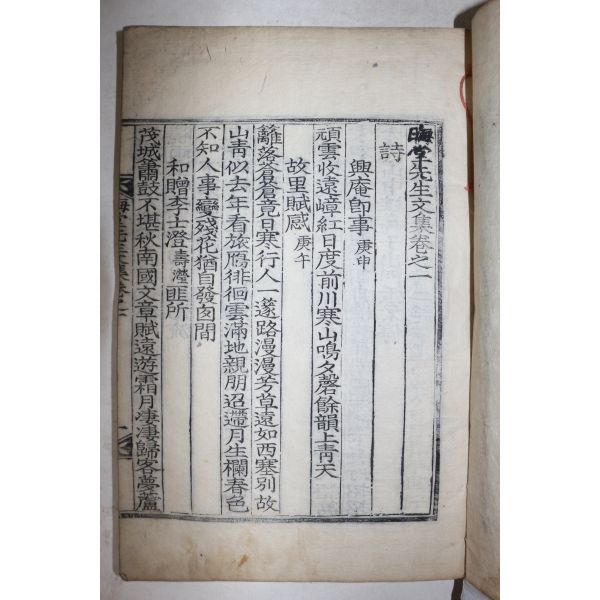 晦堂先生文集卷之一
詩
興庵卽事 庚申
頑雲收遠嶂紅日度前川寒山鳴夕磬餘韻上靑天
故里賦感 庚午
籬落蒼蒼竟日寒行人一簑路漫漫芳草遠如西塞別故
山靑似去年看旅鴈徘徊雲滿地親朋迢遰月生欄春色
不知人事變殘花猶自發囱間
和贈李士澄 壽瀅 匪所
茂城簫鼓不堪秋南國文章賦遠遊霜月凄凄歸客夢蘆